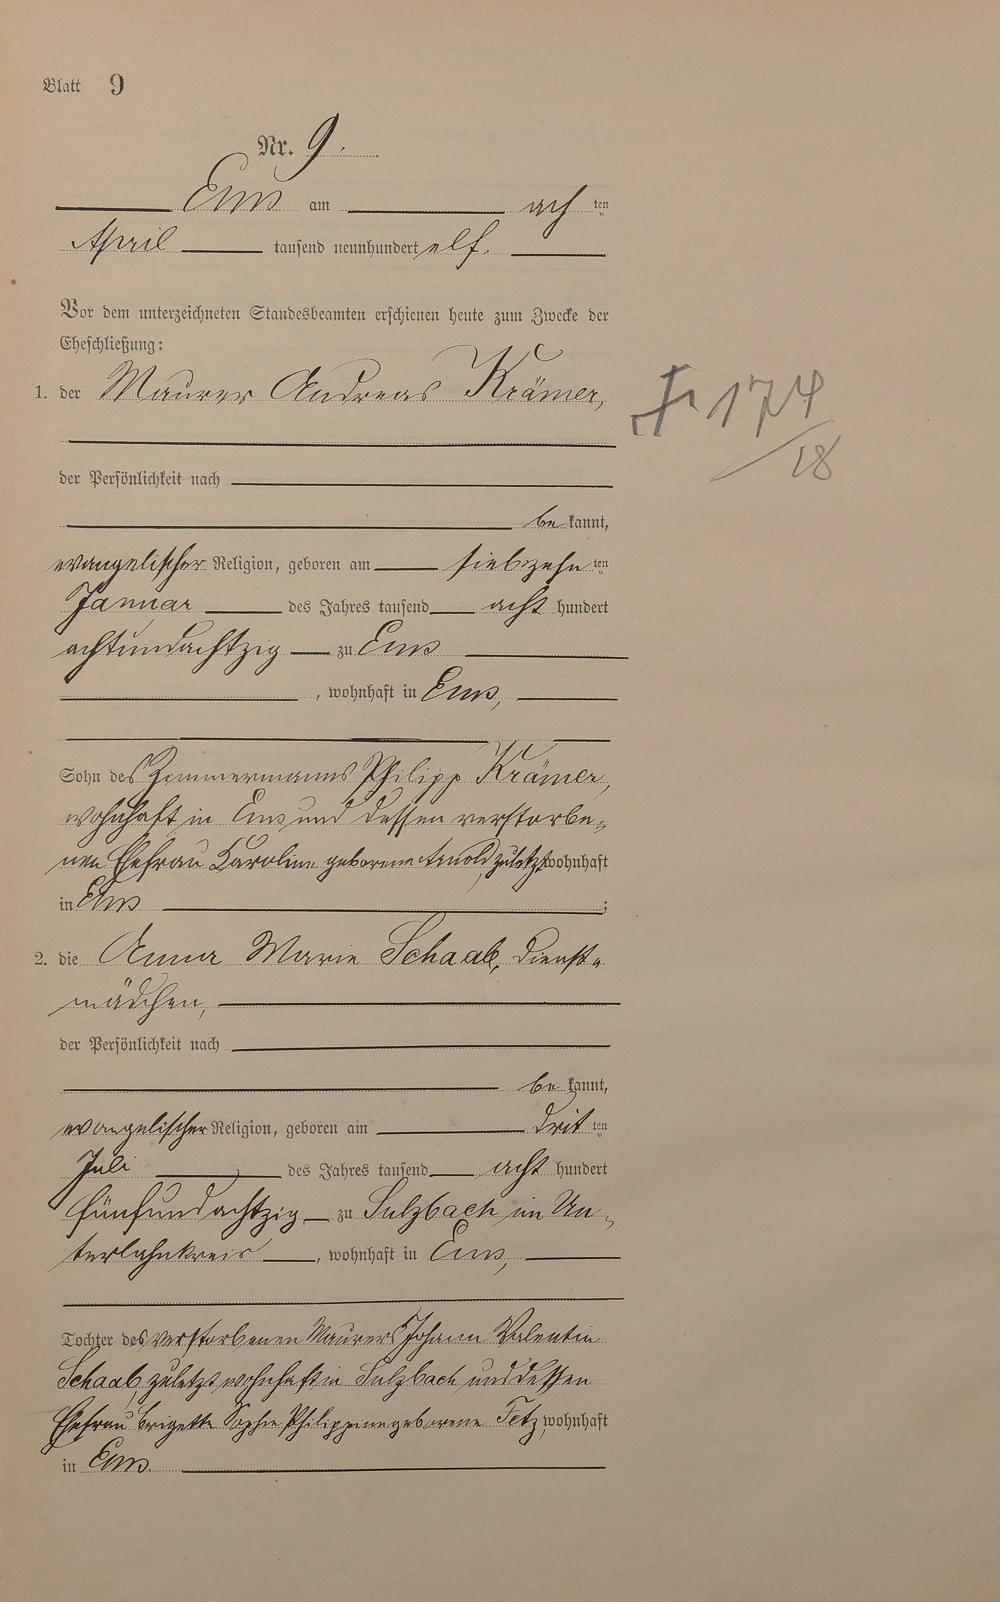 Blatt 9
Nr. 9.
Ems am ach ten
April tausend neunhundert elf.
Vor dem unterzeichneten Standesbeamten erschienen heute zum Zwecke der
Eheschließung:
1. der Maurer Andreas Krämer,
174
/18
der Persönlichkeit nach
be kannt,
evangelischer Religion, geboren am siebzehn ten
Januar des Jahres tausend acht hundert
achtundachtzig zu Ems
, wohnhaft in Ems,
Sohn des Zimmermanns Philipp Krämer,
wohnhaft in Ems und dessen verstorbe-
nen Ehefrau Karoline geborene Arnold, zuletzt wohnhaft
in Ems ;
2. die Anna Marie Schaab, Dienst-
mädchen,
der Persönlichkeit nach
be kannt,
evangelischer Religion, geboren am drit ten
Juli des Jahres tausend acht hundert
fünfundachtzig zu Sulzbach im Un-
terlahnkreis , wohnhaft in Ems,
Tochter des verstorbenen Maurers Johann Valentin
Schaab, zuletzt wohnhaft in Sulzbach und dessen
Ehefrau Brigette Sophie Philippine geborene Fetz, wohnhaft
in Ems.